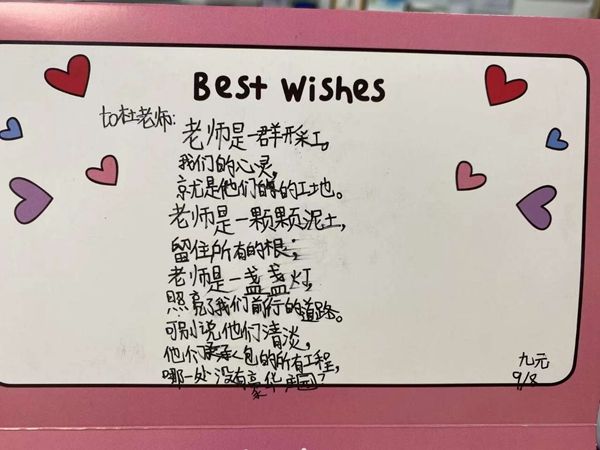 Best Wishes
to杜老师:
老师是一群形彩工。
我们的心灵,
就是他们的的工地。
老师是一颗颗泥土,
留住所有的根;
老师是一盏盏灯,
照亮了我们前行的道路。
可别说他们清淡,
他们承包的所有工程,
哪一处没有豪华
九元
9/8